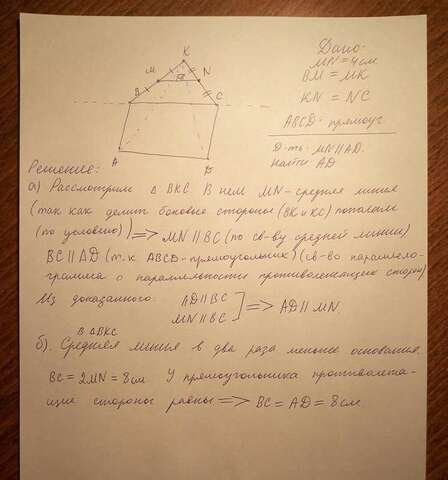 Дано:
MN = 4 см
BM = MK
KN = NC
ABCD - прямоуг.
Д-ть: MN || AD.
Найти AD
K
M
N
α
B
C
A
D
Решение:
а) Рассмотрим Δ BKC. В нем MN - средняя линия
(так как делит боковые стороны (BK и KC) пополам
(по условию) ⟹ MN || BC (по св-ву средней линии)
BC || AD (т.к ABCD - прямоугольник) (св-во параллело-
грамма о параллельности противолежащих сторон)
Из доказанного: AD || BC
MN || BC ] ⟹ AD || MN.
В ΔBKC
б). Средняя линия в два раза меньше основания.
BC = 2MN = 8 см У прямоугольника противолежа-
щие стороны равны ⟹ BC = AD = 8 см.